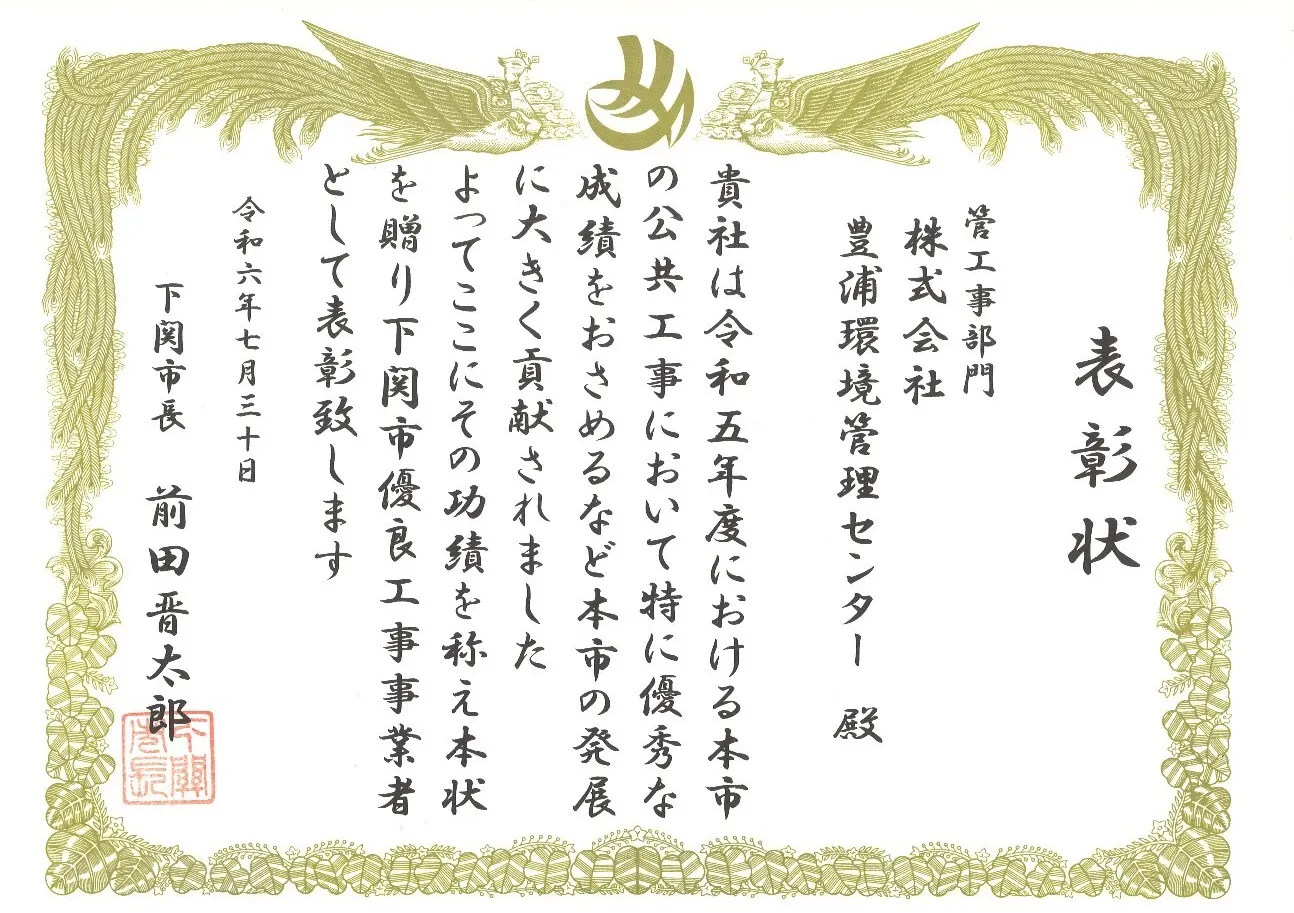 表彰状
管工事部門
株式会社
豊浦環境管理センター 殿
貴社は令和五年度における本市
の公共工事において特に優秀な
成績をおさめるなど本市の発展
に大きく貢献されました
よってここにその功績を称え本状
を贈り下関市優良工事事業者
として表彰致します
令和六年七月三十日
下関市長 前田晋太郎